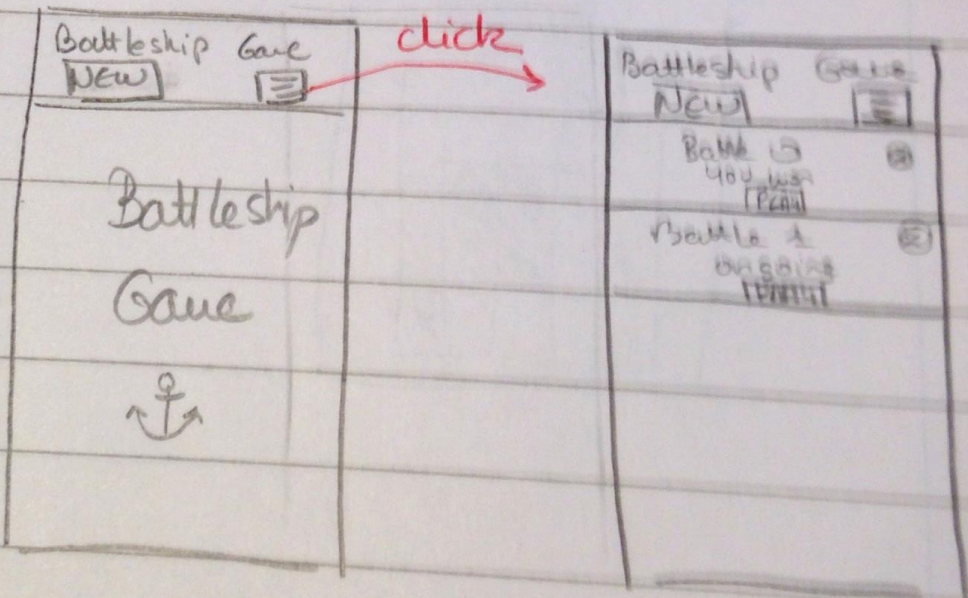 Battleship Game
NEW
click
Battleship
Game
Battleship Game
NEW
Battle
you
PLAY
Battle 1
ongoing